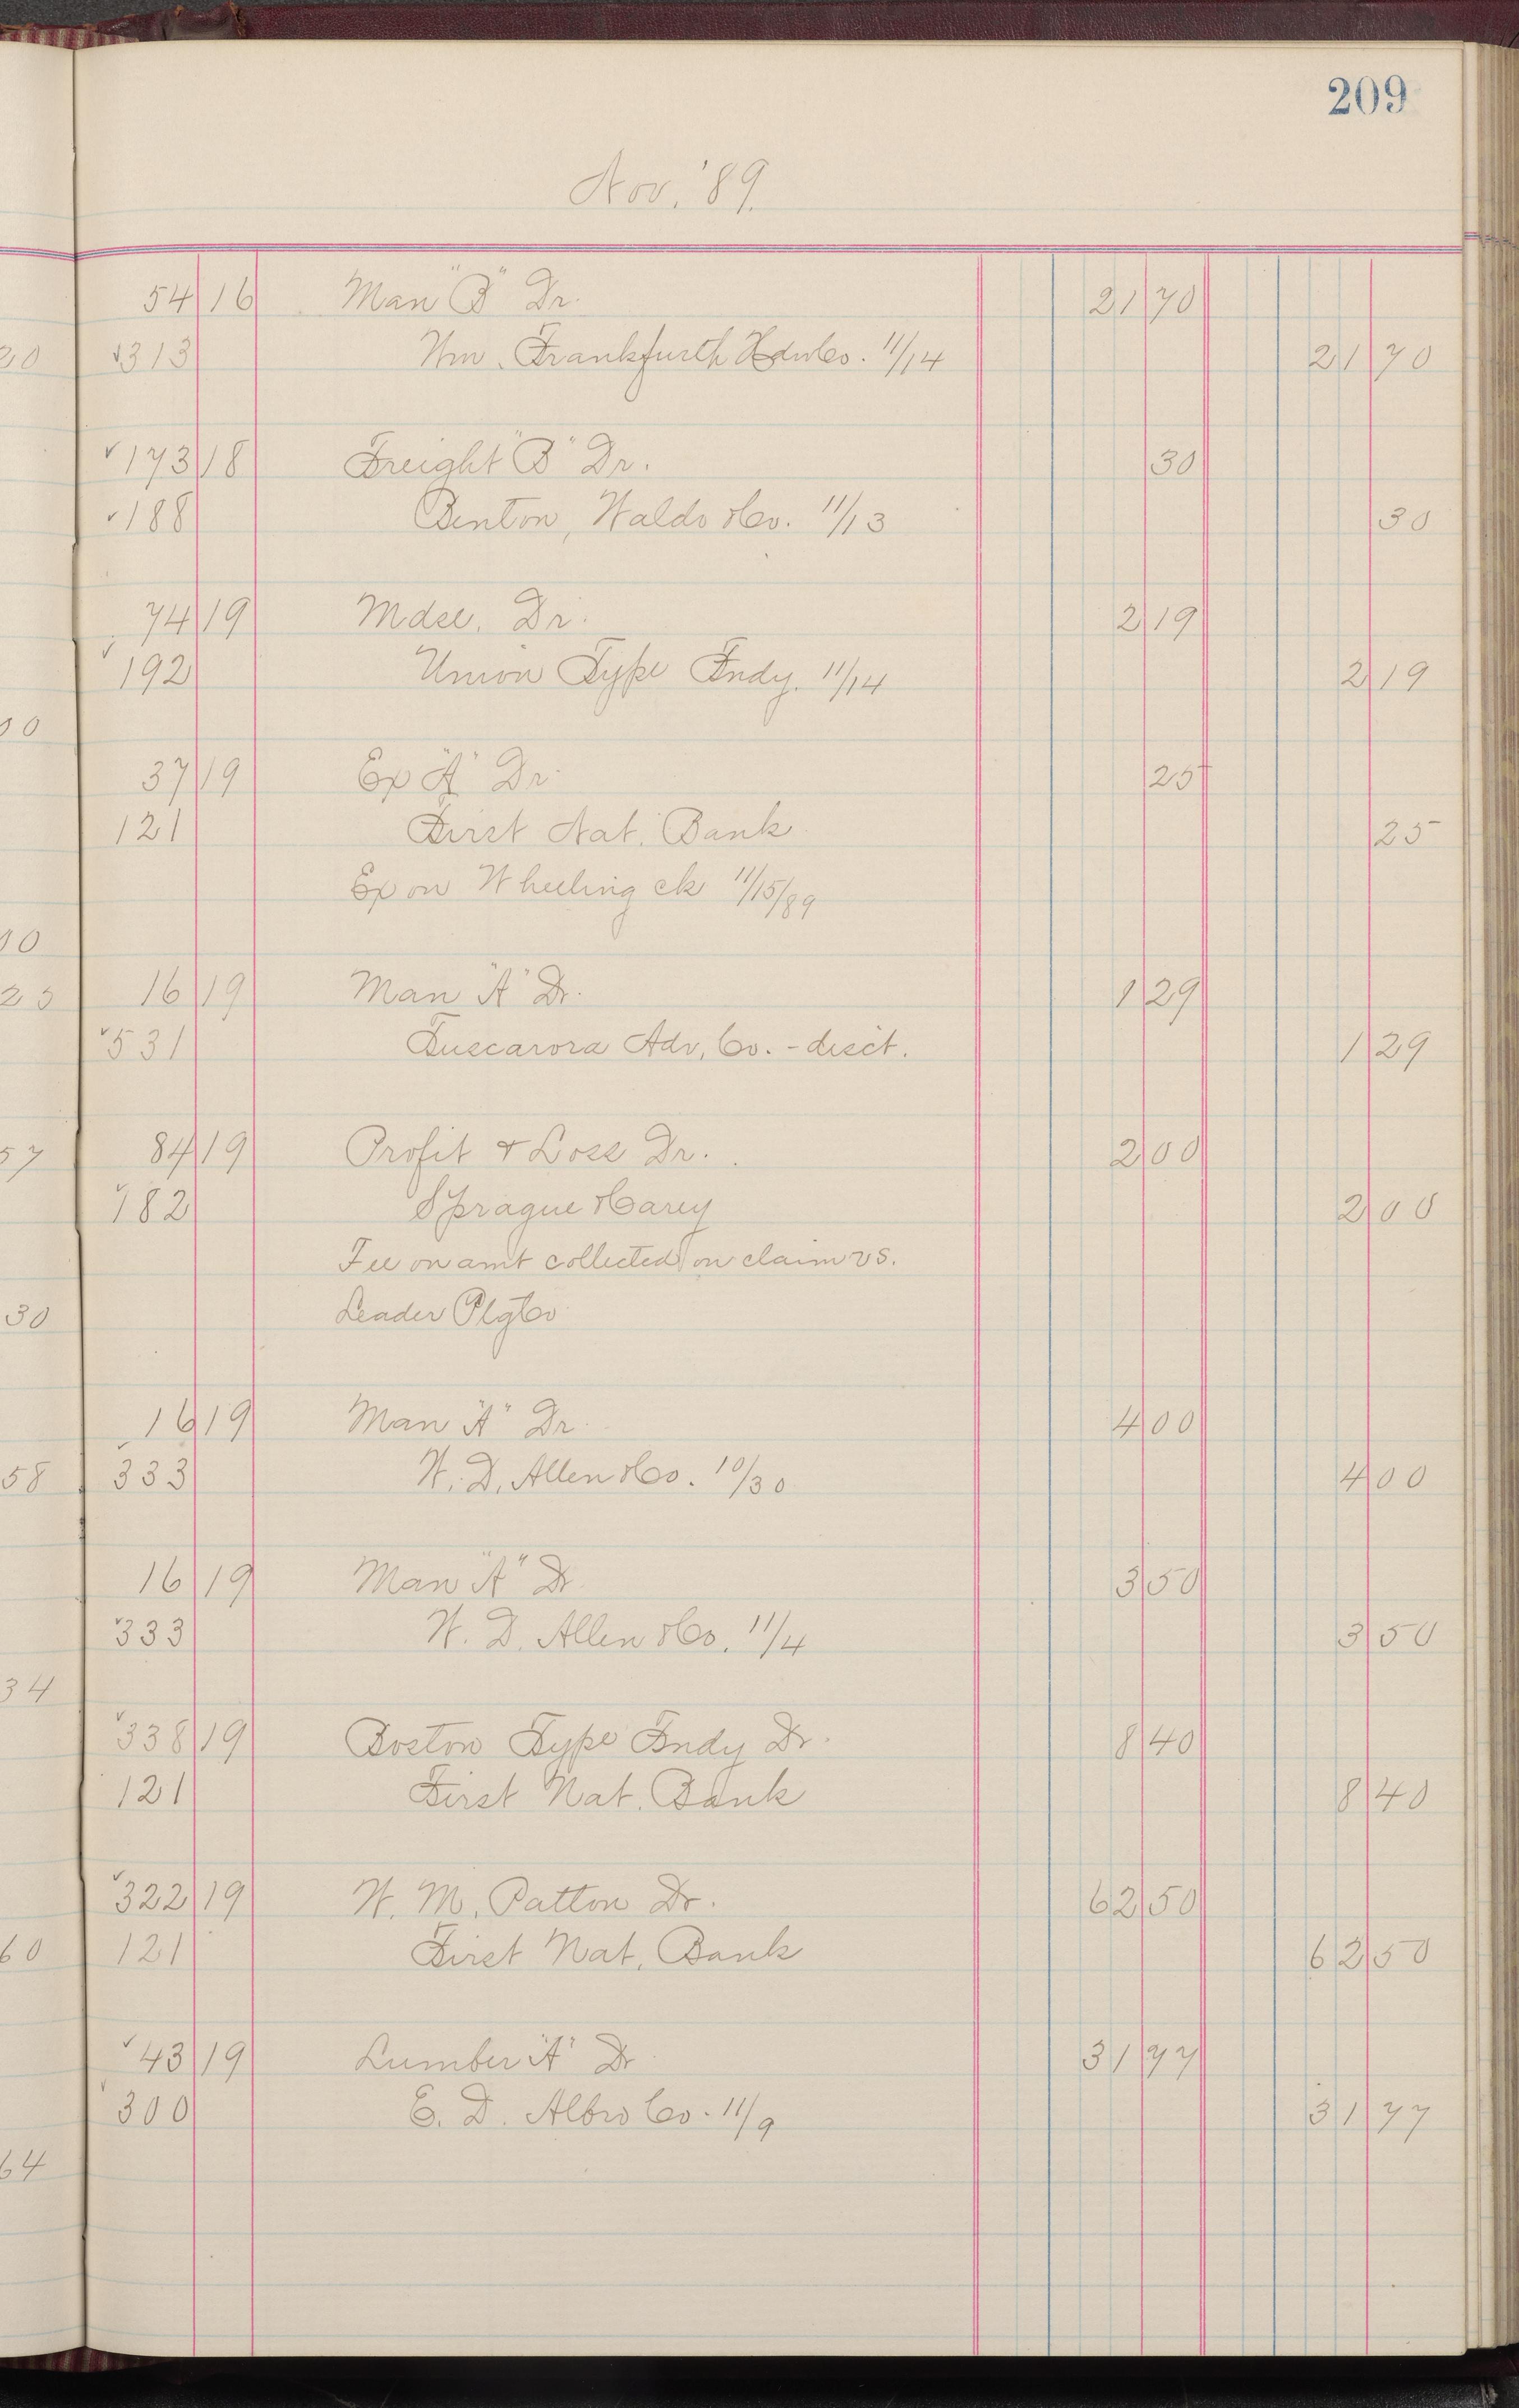 209
Nov. '89.
54 16 Man "B" Dr. 21 70
20 313 Wm. Frankfurth Hdw Co. 11/14 21 70
173 18 Freight "B" Dr. 30
188 Benton, Waldo & Co. 11/13 30
74 19 Mdse. Dr. 2 19
192 Union Type Fndy. 11/14 2 19
00
37 19 Ex "A" Dr. 25
121 First Nat. Bank 25
Ex on Wheeling ck 11/15/89
00
25 16 19 Man "A" Dr. 1 29
531 Tuscarora Adv. Co. - disct. 1 29
57 84 19 Profit & Loss Dr. 2 00
182 Sprague & Carey 2 00
Fee on amt collected on claim vs.
30 Leader Plg Co
16 19 Man "A" Dr. 4 00
58 333 W. D. Allen & Co. 10/30 4 00
16 19 Man "A" Dr 3 50
333 W. D. Allen & Co. 11/4 3 50
34
338 19 Boston Type Fndy Dr. 8 40
121 First Nat. Bank 8 40
322 19 W. M. Patton Dr. 62 50
60 121 First Nat. Bank 62 50
43 19 Lumber "A" Dr 31 77
300 E. D. Albro Co. 11/9 31 77
64